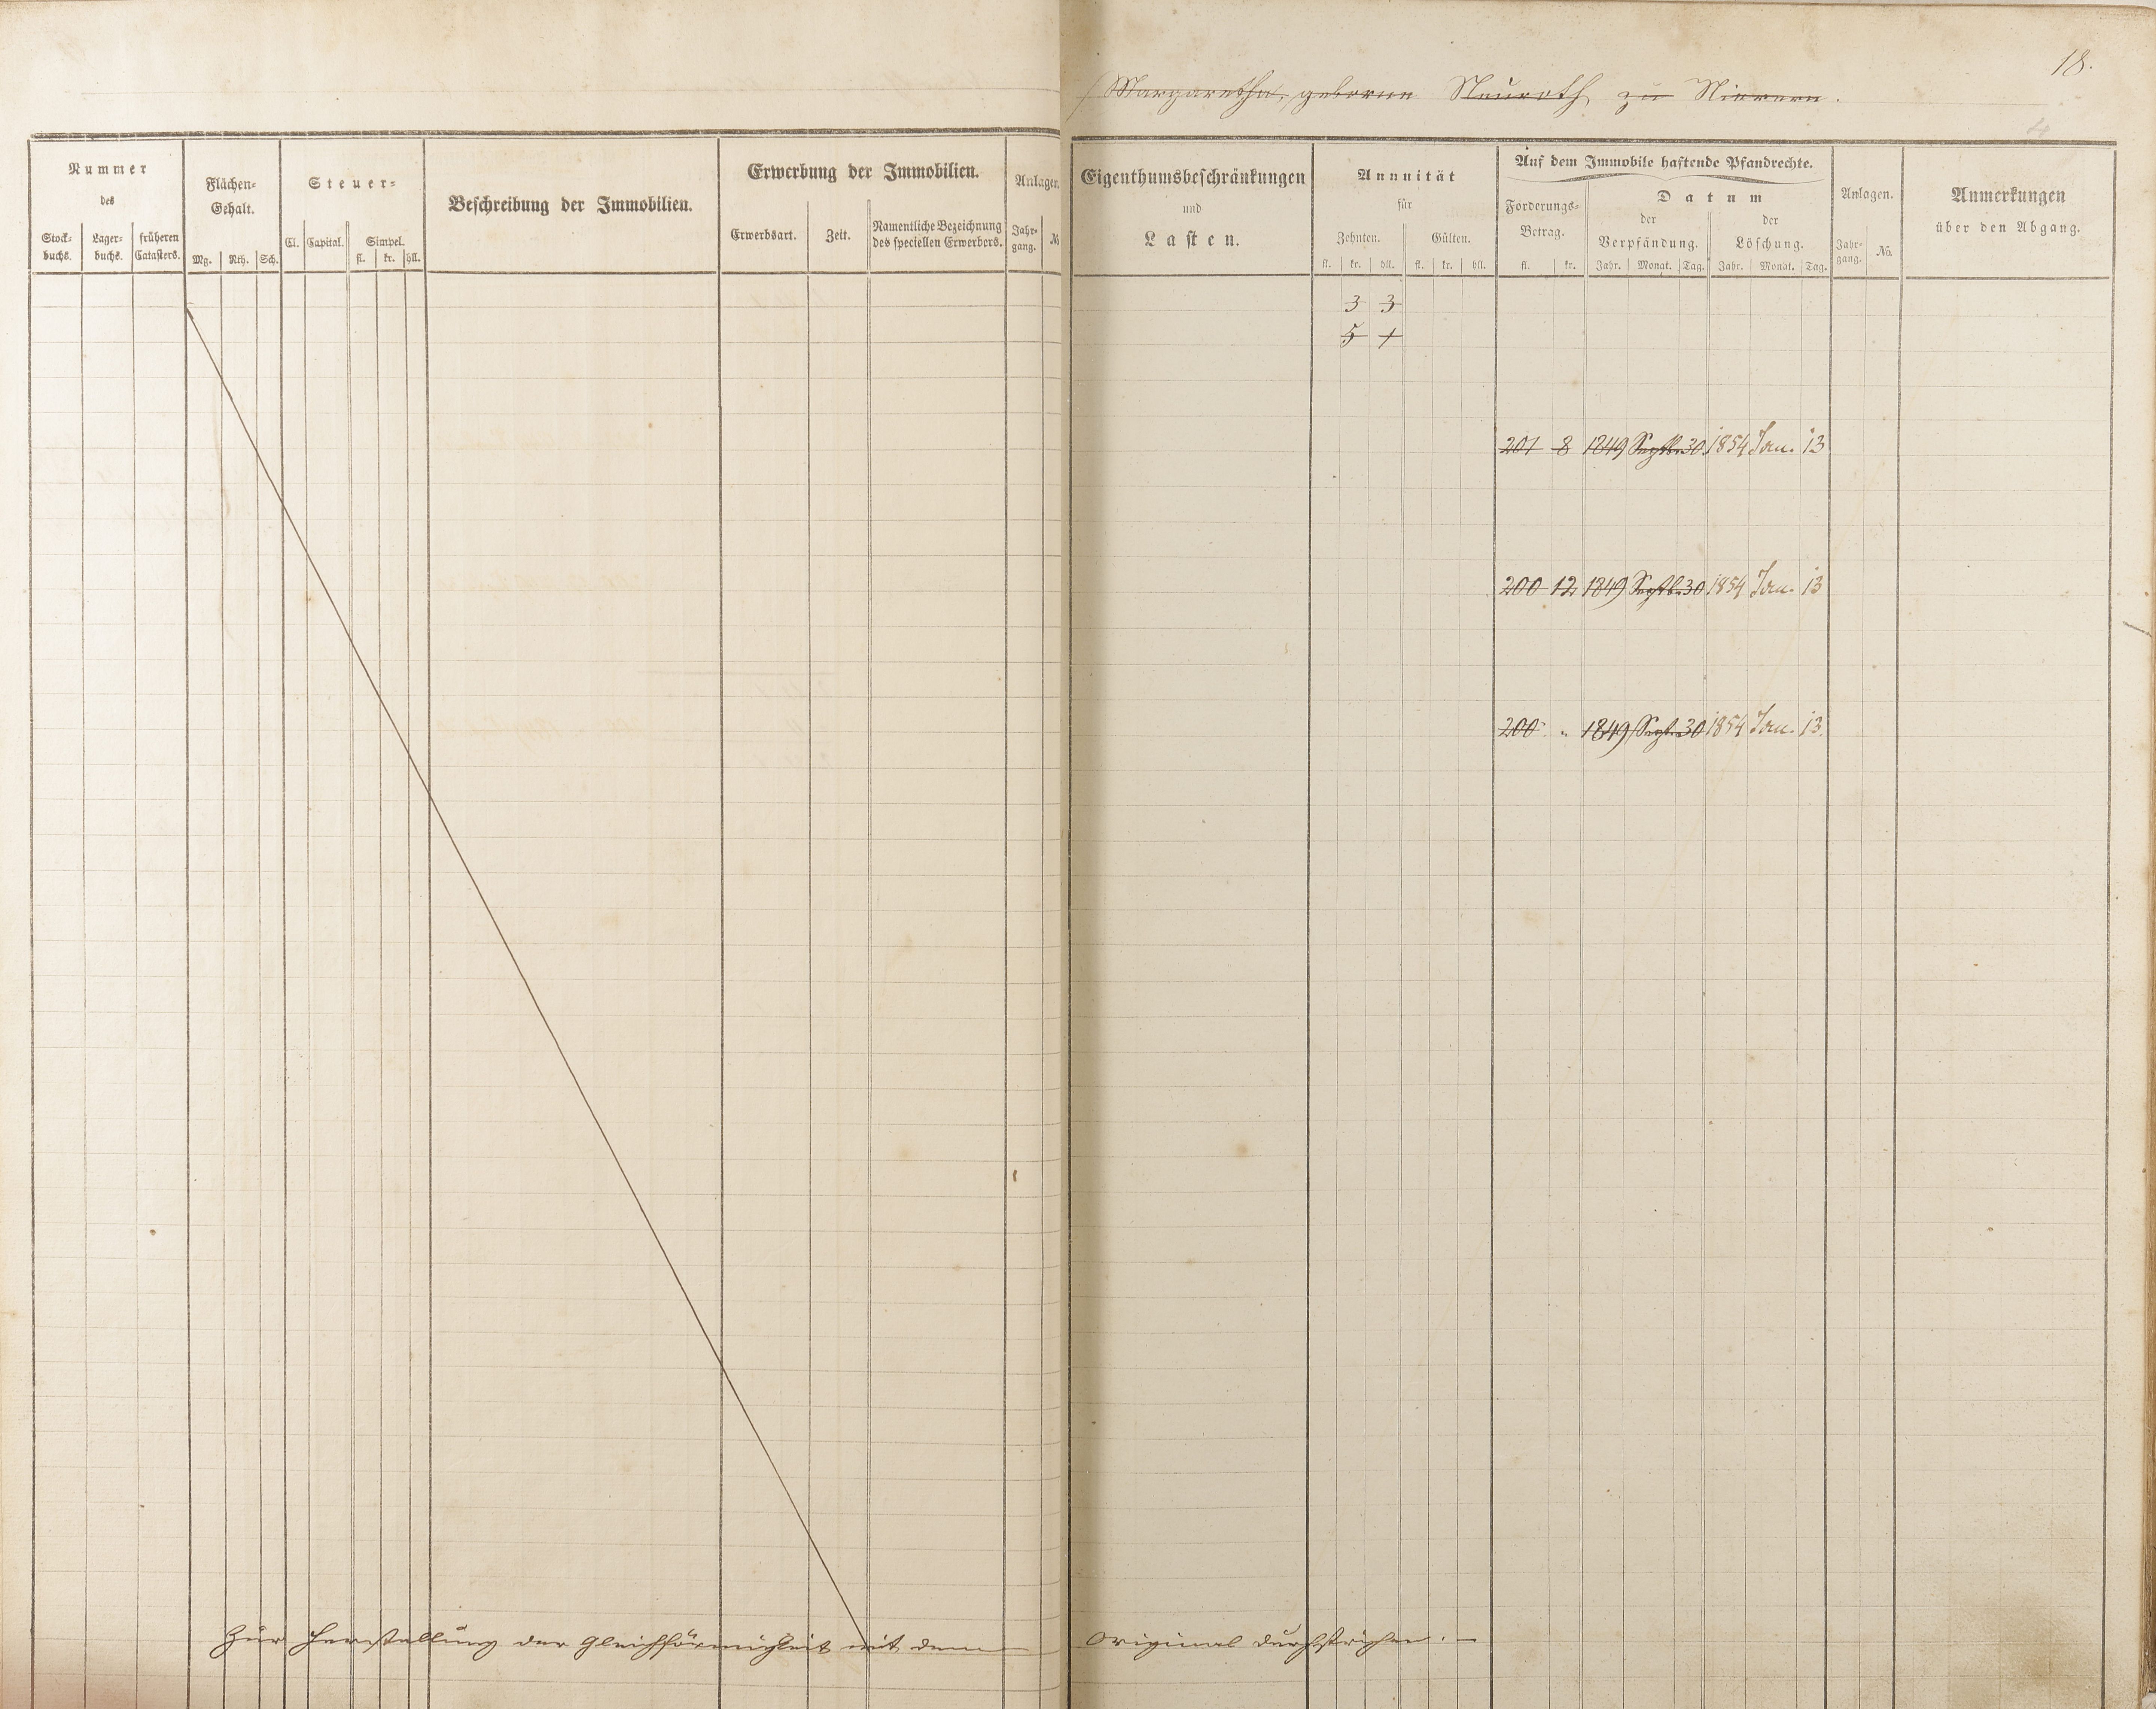 18.
Margaretha, geborne Neuroth zu Nievern.
Nummer
des
Stock-
buchs.
Lager-
buchs.
früheren
Catasters.
Flächen-
Gehalt.
Mg. Rth. Sch.
Steuer-
Cl. Capital. Simpel.
fl. kr. hll.
Beschreibung der Immobilien.
Erwerbung der Immobilien.
Erwerbsart. Zeit.
Namentliche Bezeichnung
des speciellen Erwerbers.
Anlagen.
Jahr-
gang.
Eigenthumsbeschränkungen
und
Lasten.
Annuität
für
Zehnten. Gülten.
fl. kr. hll. fl. kr. hll.
Auf dem Immobile haftende Pfandrechte.
Forderungs-
Betrag.
fl. kr.
Datum
der
Verpfändung.
Jahr. Monat. Tag.
der
Löschung.
Jahr. Monat. Tag.
Anlagen.
Jahr-
gang. No.
Anmerkungen
über den Abgang.
3 3
5 1
201 8 1849 Septbr 30. 1854 Jan. 13
200 12 1849 Septbr 30 1854 Jan. 13
200 " 1849 Septr 30 1854 Jan. 13.
Zur Herstellung der Gleichförmigkeit mit dem Original durchstrichen. —